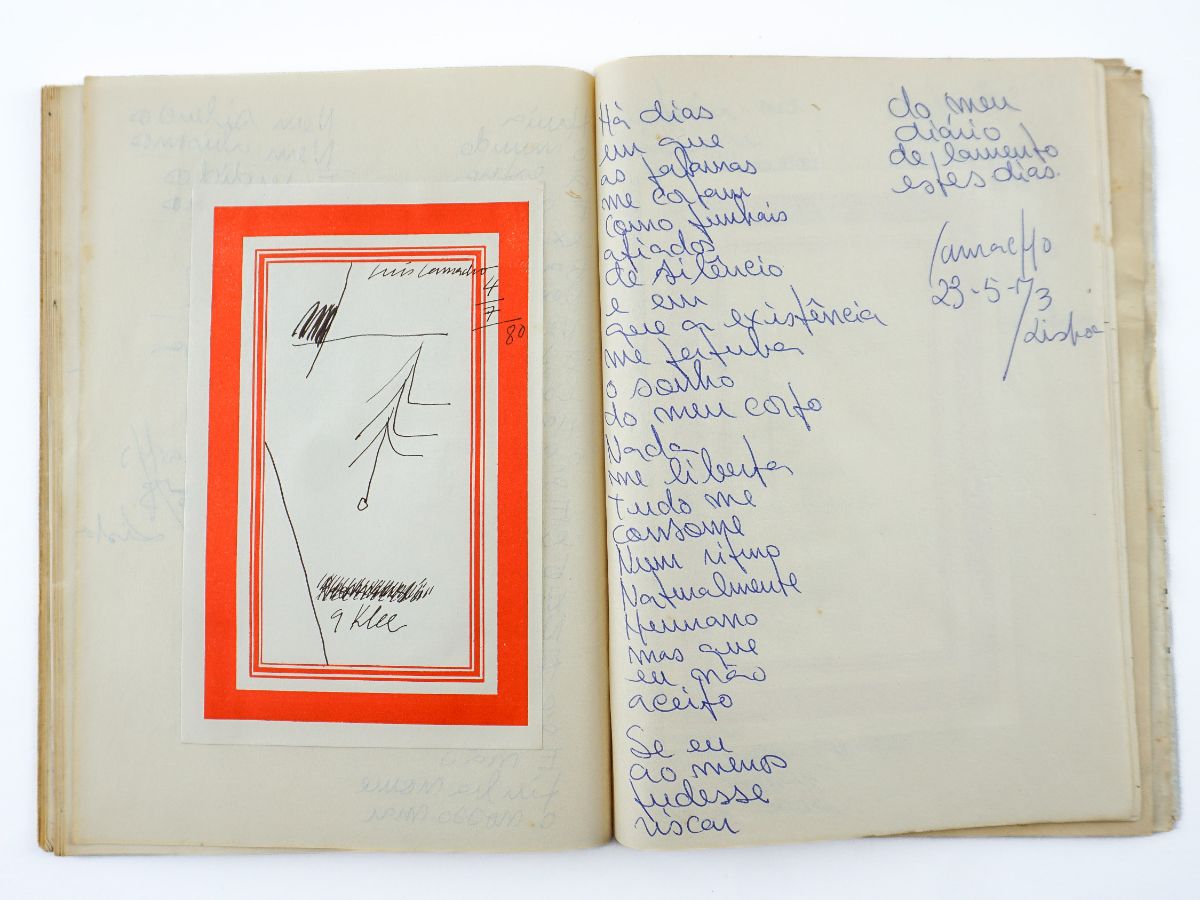 Luís Camacho
4
7
80
a Klee
Há dias
em que
as palavras
me cortam
como punhais
afiados
de silêncio
e em
que a existência
me perturba
o sonho
do meu corpo
Nada
me liberta
tudo me
consome
Num ritmo
Naturalmente
Humano
mas que
eu não
aceito
Se eu
ao menos
pudesse
riscar
do meu
diário
de lamento
estes dias.
Camacho
23-5-73
Lisboa